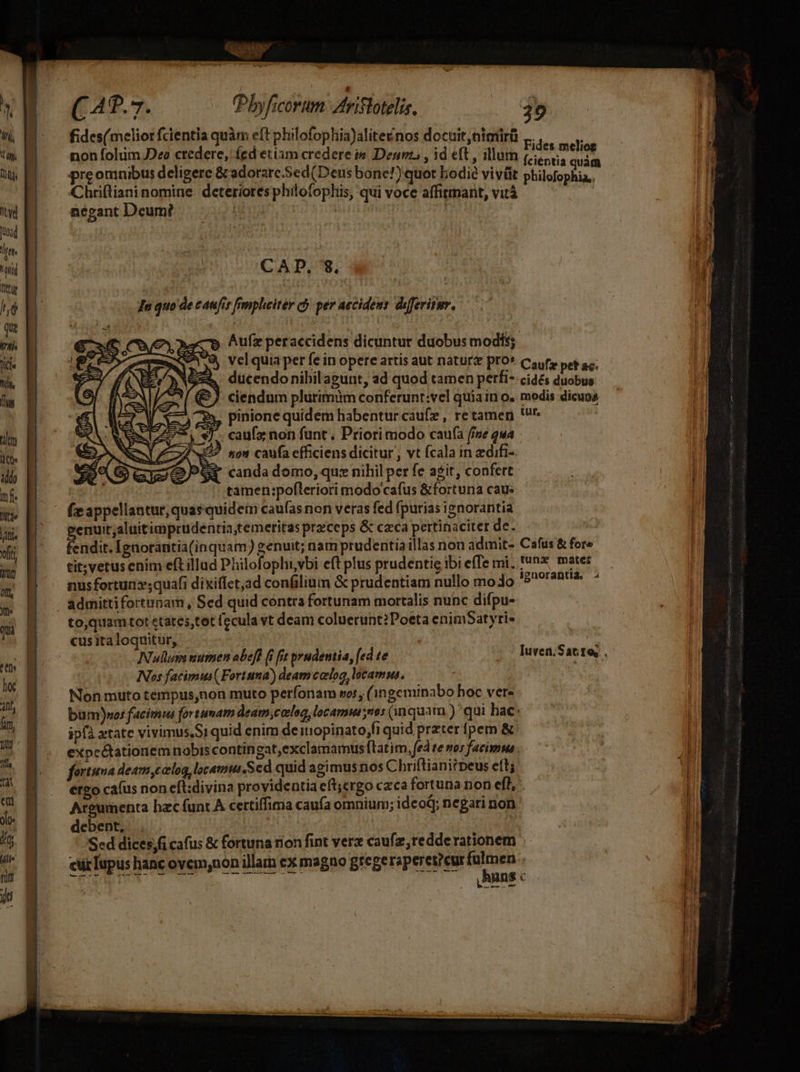 CAP. 7. Physicorum Aristotelis. 39
fides(melior scientia quàm est philosophia)aliter nos docuit,nimirũ
non solùm Deo credere, sed etiam credere in Deum, id est, illum
pre omnibus deligere & adorare.Sed(Deus bone!)quot hodiè vivũt
Christiani nomine deteriores philosophis, qui voce affirmant, vitâ
negant Deum?
Fides melior
scientia quàm
philosophia.
CAP. 8.
In quo de causis simpliciter & per accidens disseritur.
Ausæ per accidens dicuntur duobus modis;
vel quia per se in opere artis aut naturæ pro-
ducendo nihil agunt, ad quod tamen perfi-
ciendum plurimùm conferunt:vel quia in o-
pinione quidem habentur causæ, re tamen
causæ non sunt. Priori modo causa sine qua
non causa efficiens dicitur, vt scala in ædifi-
canda domo, quæ nihil per se agit, confert
tamen:posteriori modo casus & fortuna cau-
Causæ per ac-
cidẽs duobus
modis dicun-
tur.
sæ appellantur, quas quidem causas non veras sed spurias ignorantia
genuit,aluit imprudentia,temeritas præceps & cæca pertinaciter de-
fendit. Ignorantia(inquam) genuit; nam prudentia illas non admit-
tit;vetus enim est illud Philosophi,vbi est plus prudentię ibi esse mi-
nus fortunæ;quasi dixisset,ad consilium & prudentiam nullo modo
admitti fortunam, Sed quid contra fortunam mortalis nunc dispu-
to,quam tot ętates,tot secula vt deam coluerunt?Poeta enim Satyri-
cus ita loquitur,
Casus & for-
tunæ mater
ignorantia.
Nullum numen abest si sit prudentia, sed te
Nos facimus(Fortuna) deam cœloq, locamus.
Iuven.Sat.10.
Non muto tempus,non muto personam nos, (ingeminabo hoc ver-
bum)nos facimus fortunam deam,cœloq, locamus,nos (inquam) qui hac
ipsâ ætate vivimus.Si quid enim de inopinato,si quid præter spem &
expectationem nobis contingat,exclamamus statim,sed te nos facimus
fortuna deam,cœloq, locamus.Sed quid agimus nos Christiani?Deus est;
ergo casus non est:divina providentia est;ergo cæca fortuna non est,
Argumenta hæc sunt A certissima causa omnium; ideoq; negari non
debent.
Sed dices,si casus & fortuna non sint veræ causæ,redde rationem
cur lupus hanc ovem,non illam ex magno grege raperet?cur fulmen
hunc